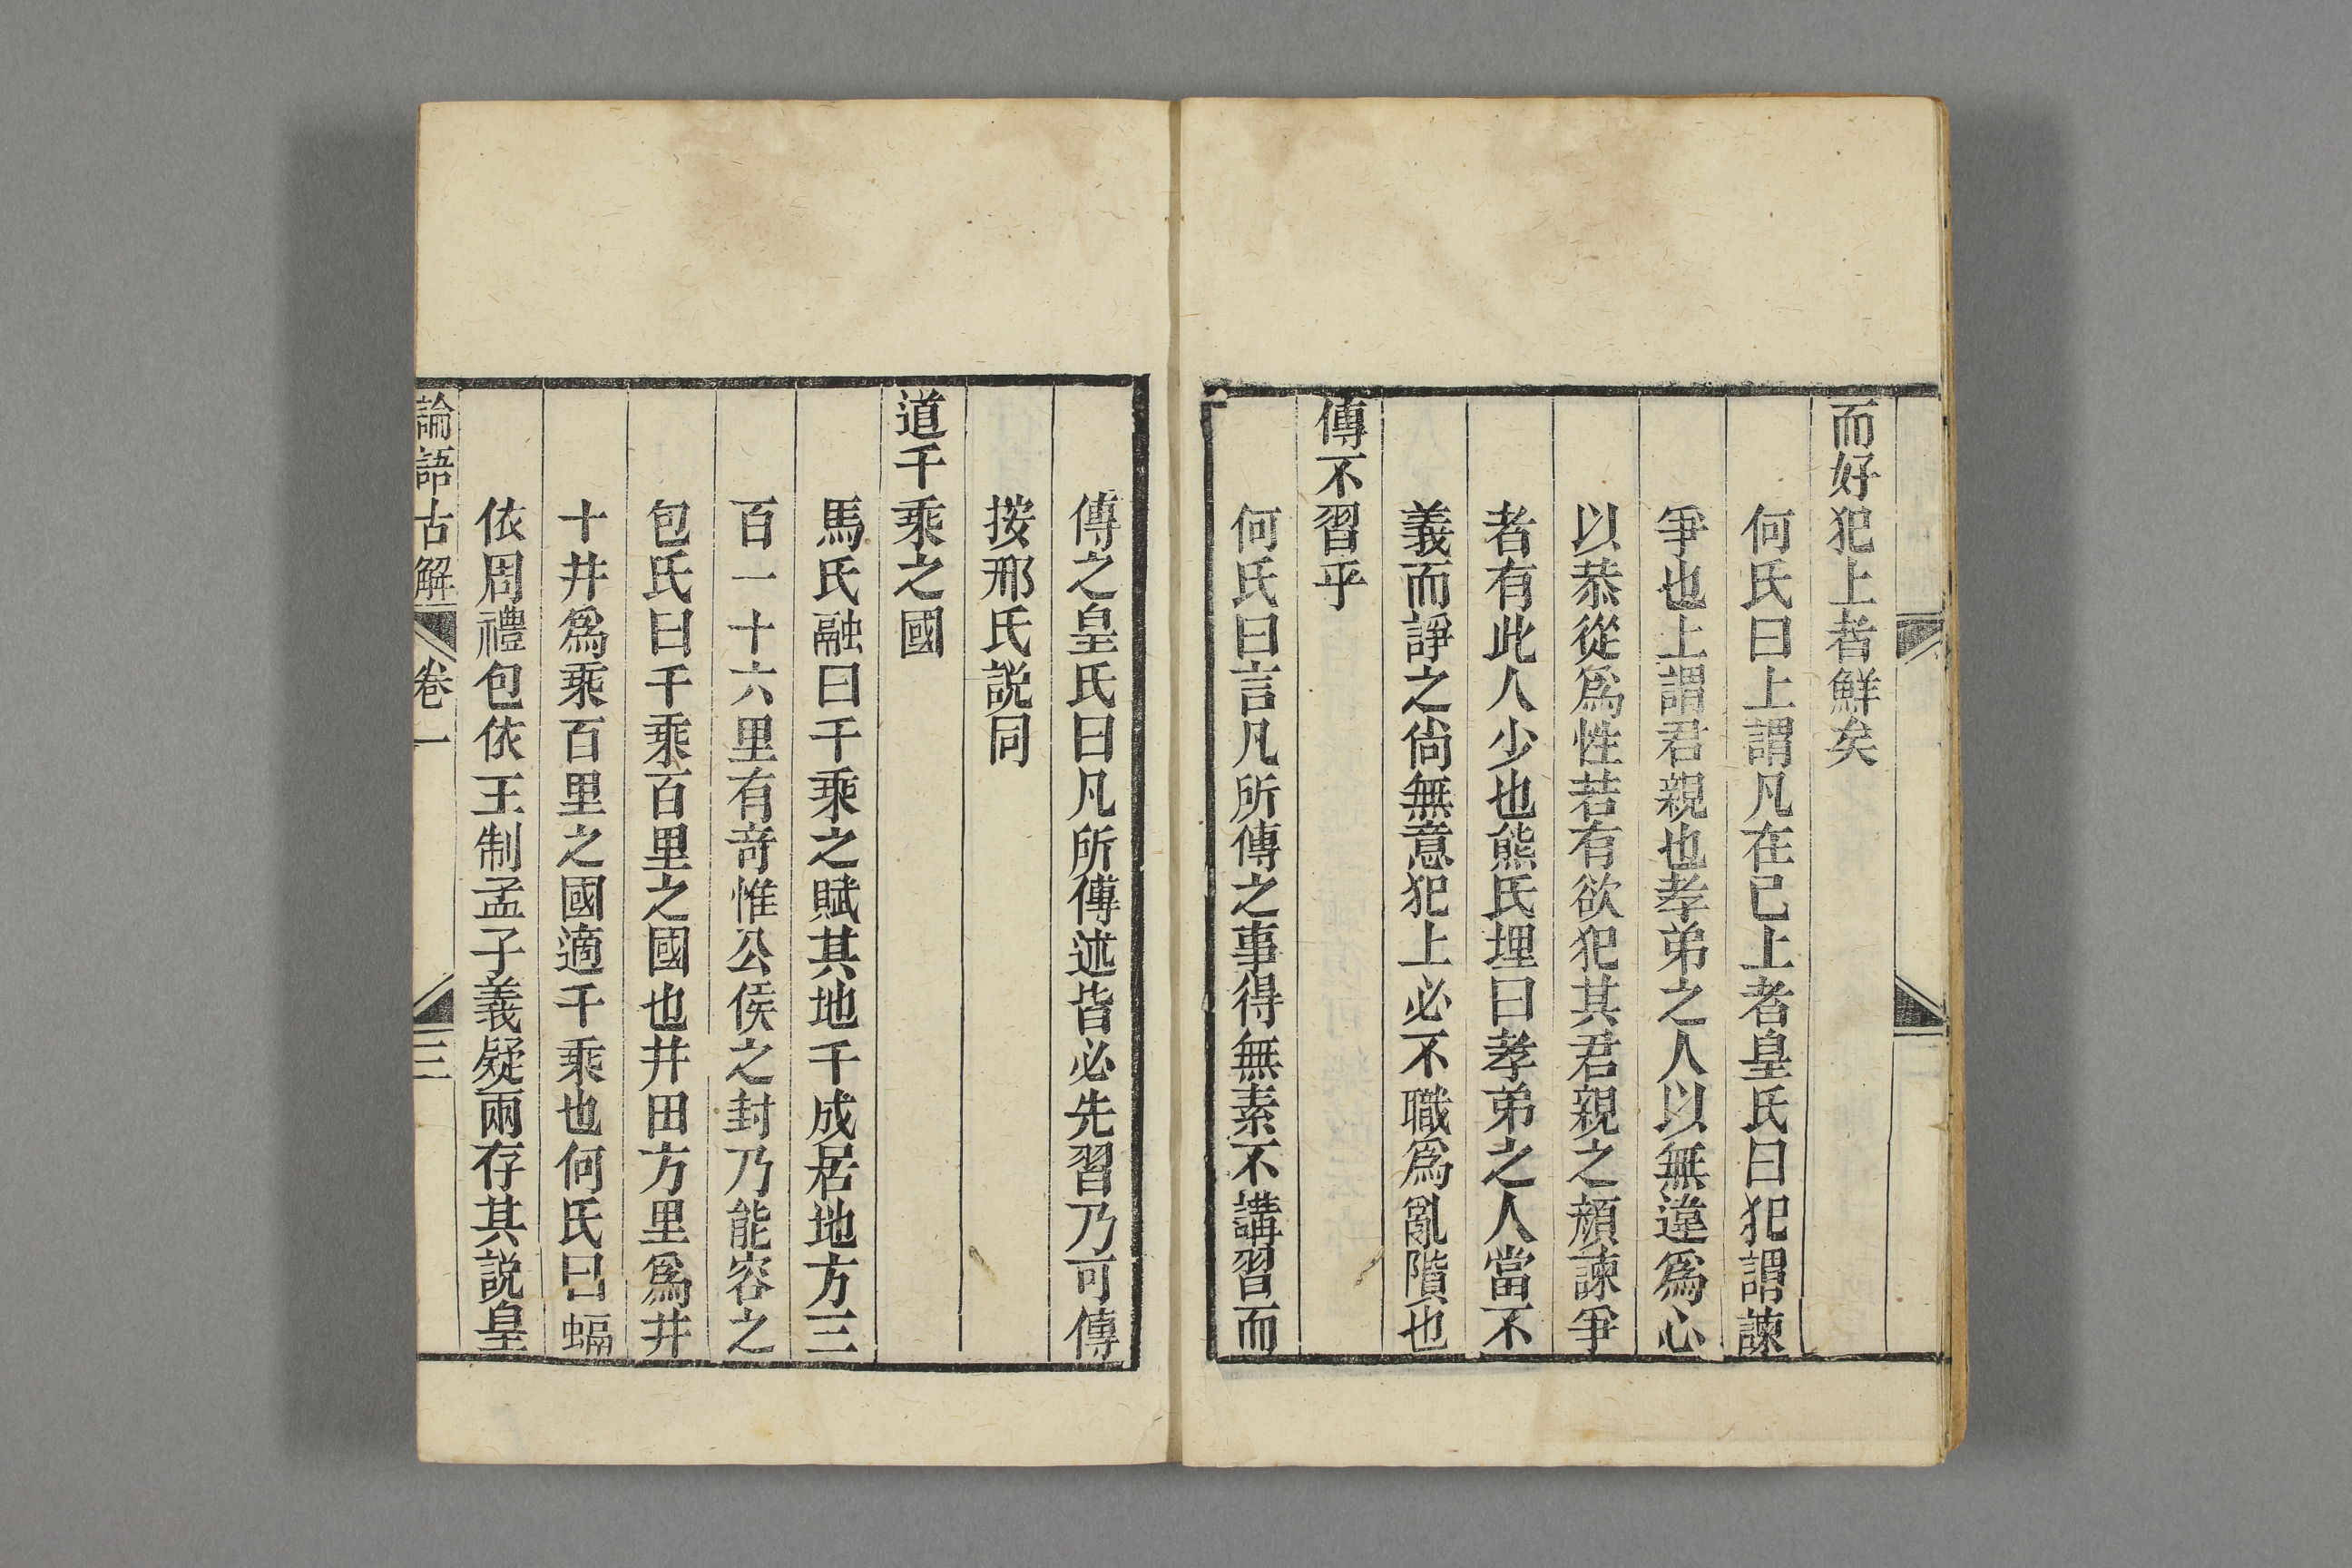 而好犯上者鮮矣
何氏曰上謂凡在已上者皇氏曰犯謂諫
爭也上謂君親也孝弟之人以無違爲心
以恭從爲性若有欲犯其君親之顏諫爭
者有此人少也熊氏埋曰孝弟之人當不
義而諍之尙無意犯上必不職爲亂階也
傳不習乎
何氏曰言凡所傳之事得無素不講習而
傳之皇氏曰凡所傳述皆必先習乃可傳
按邢氏説同
道千乘之國
馬氏融曰千乘之賦其地千成居地方三
百一十六里有竒惟公侯之封乃能容之
包氏曰千乘百里之國也井田方里爲井
十井爲乘百里之國適千乘也何氏曰蝠
依周禮包依王制孟子義疑兩存其説皇
論語古解 卷一 三